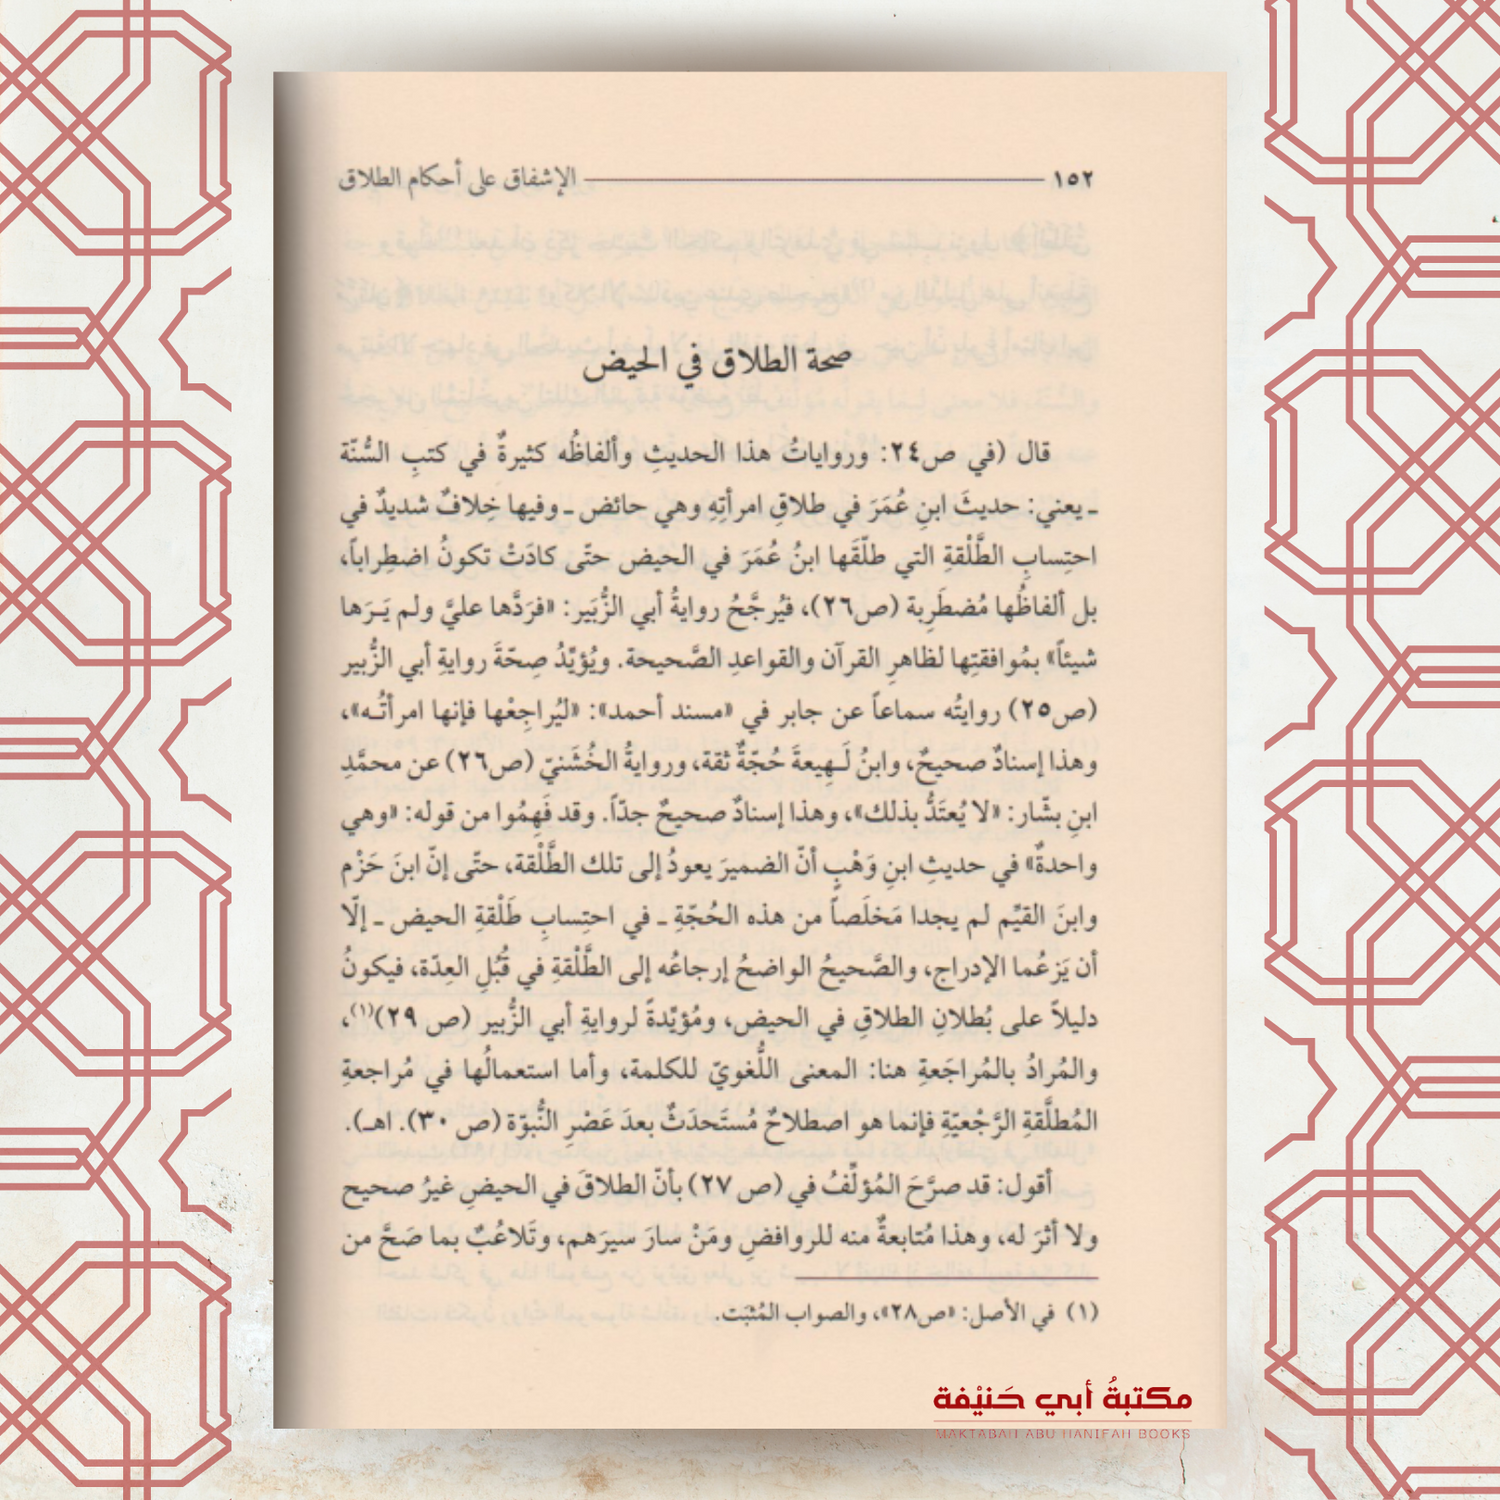 ١٥٢ الإشفاق على أحكام الطلاق
صحة الطلاق في الحيض
قال (في ص٢٤: ورواياتُ هذا الحديثِ وألفاظُه كثيرةٌ في كتبِ السُّنّة
ـ يعني: حديثَ ابنِ عُمَرَ في طلاقِ امرأتِهِ وهي حائض ـ وفيها خِلافٌ شديدٌ في
احتِسابِ الطَّلْقةِ التي طلّقَها ابنُ عُمَرَ في الحيض حتّى كادَتْ تكونُ اضطِراباً،
بل ألفاظُها مُضطَرِبة (ص٢٦)، فيُرجَّحُ روايةُ أبي الزُّبَير: «فرَدَّها عليَّ ولم يَـرَها
شيئاً» بمُوافقتِها لظاهرِ القرآن والقواعدِ الصَّحيحة. ويُؤيِّدُ صِحّةَ روايةِ أبي الزُّبير
(ص٢٥) روايتُه سماعاً عن جابر في «مسند أحمد»: «ليُراجِعْها فإنها امرأتُـه»،
وهذا إسنادٌ صحيحٌ، وابنُ لَـهِيعةَ حُجّةٌ ثقة، وروايةُ الخُشَنيّ (ص٢٦) عن محمَّدِ
ابنِ بشّار: «لا يُعتَدُّ بذلك»، وهذا إسنادٌ صحيحٌ جدّاً. وقد فَهِمُوا من قوله: «وهي
واحدةٌ» في حديثِ ابنِ وَهْبٍ أنّ الضميرَ يعودُ إلى تلك الطَّلْقة، حتّى إنّ ابنَ حَزْم
وابنَ القيِّم لم يجدا مَخلَصاً من هذه الحُجّةِ ـ في احتِسابِ طَلْقةِ الحيض ـ إلّا
أن يَزعُما الإدراج، والصَّحيحُ الواضحُ إرجاعُه إلى الطَّلْقةِ في قُبُلِ العِدّة، فيكونُ
دليلاً على بُطلانِ الطلاقِ في الحيض، ومُؤيِّدةً لروايةِ أبي الزُّبير (ص ٢٩)(١)،
والمُرادُ بالمُراجَعةِ هنا: المعنى اللُّغويّ للكلمة، وأما استعمالُها في مُراجعةِ
المُطلَّقةِ الرَّجْعيّةِ فإنما هو اصطلاحٌ مُستَحدَثٌ بعدَ عَصْرِ النُّبوّة (ص ٣٠). اهـ).
أقول: قد صرَّحَ المُؤلِّفُ في (ص ٢٧) بأنّ الطلاقَ في الحيضِ غيرُ صحيح
ولا أثرَ له، وهذا مُتابعةٌ منه للروافضِ ومَنْ سارَ سيرَهم، وتَلاعُبٌ بما صَحَّ من
(١) في الأصل: «ص٢٨»، والصواب المُثبَت.
مكتبةُ أبي حَنيْفة
MAKTABAH ABU HANIFAH BOOKS